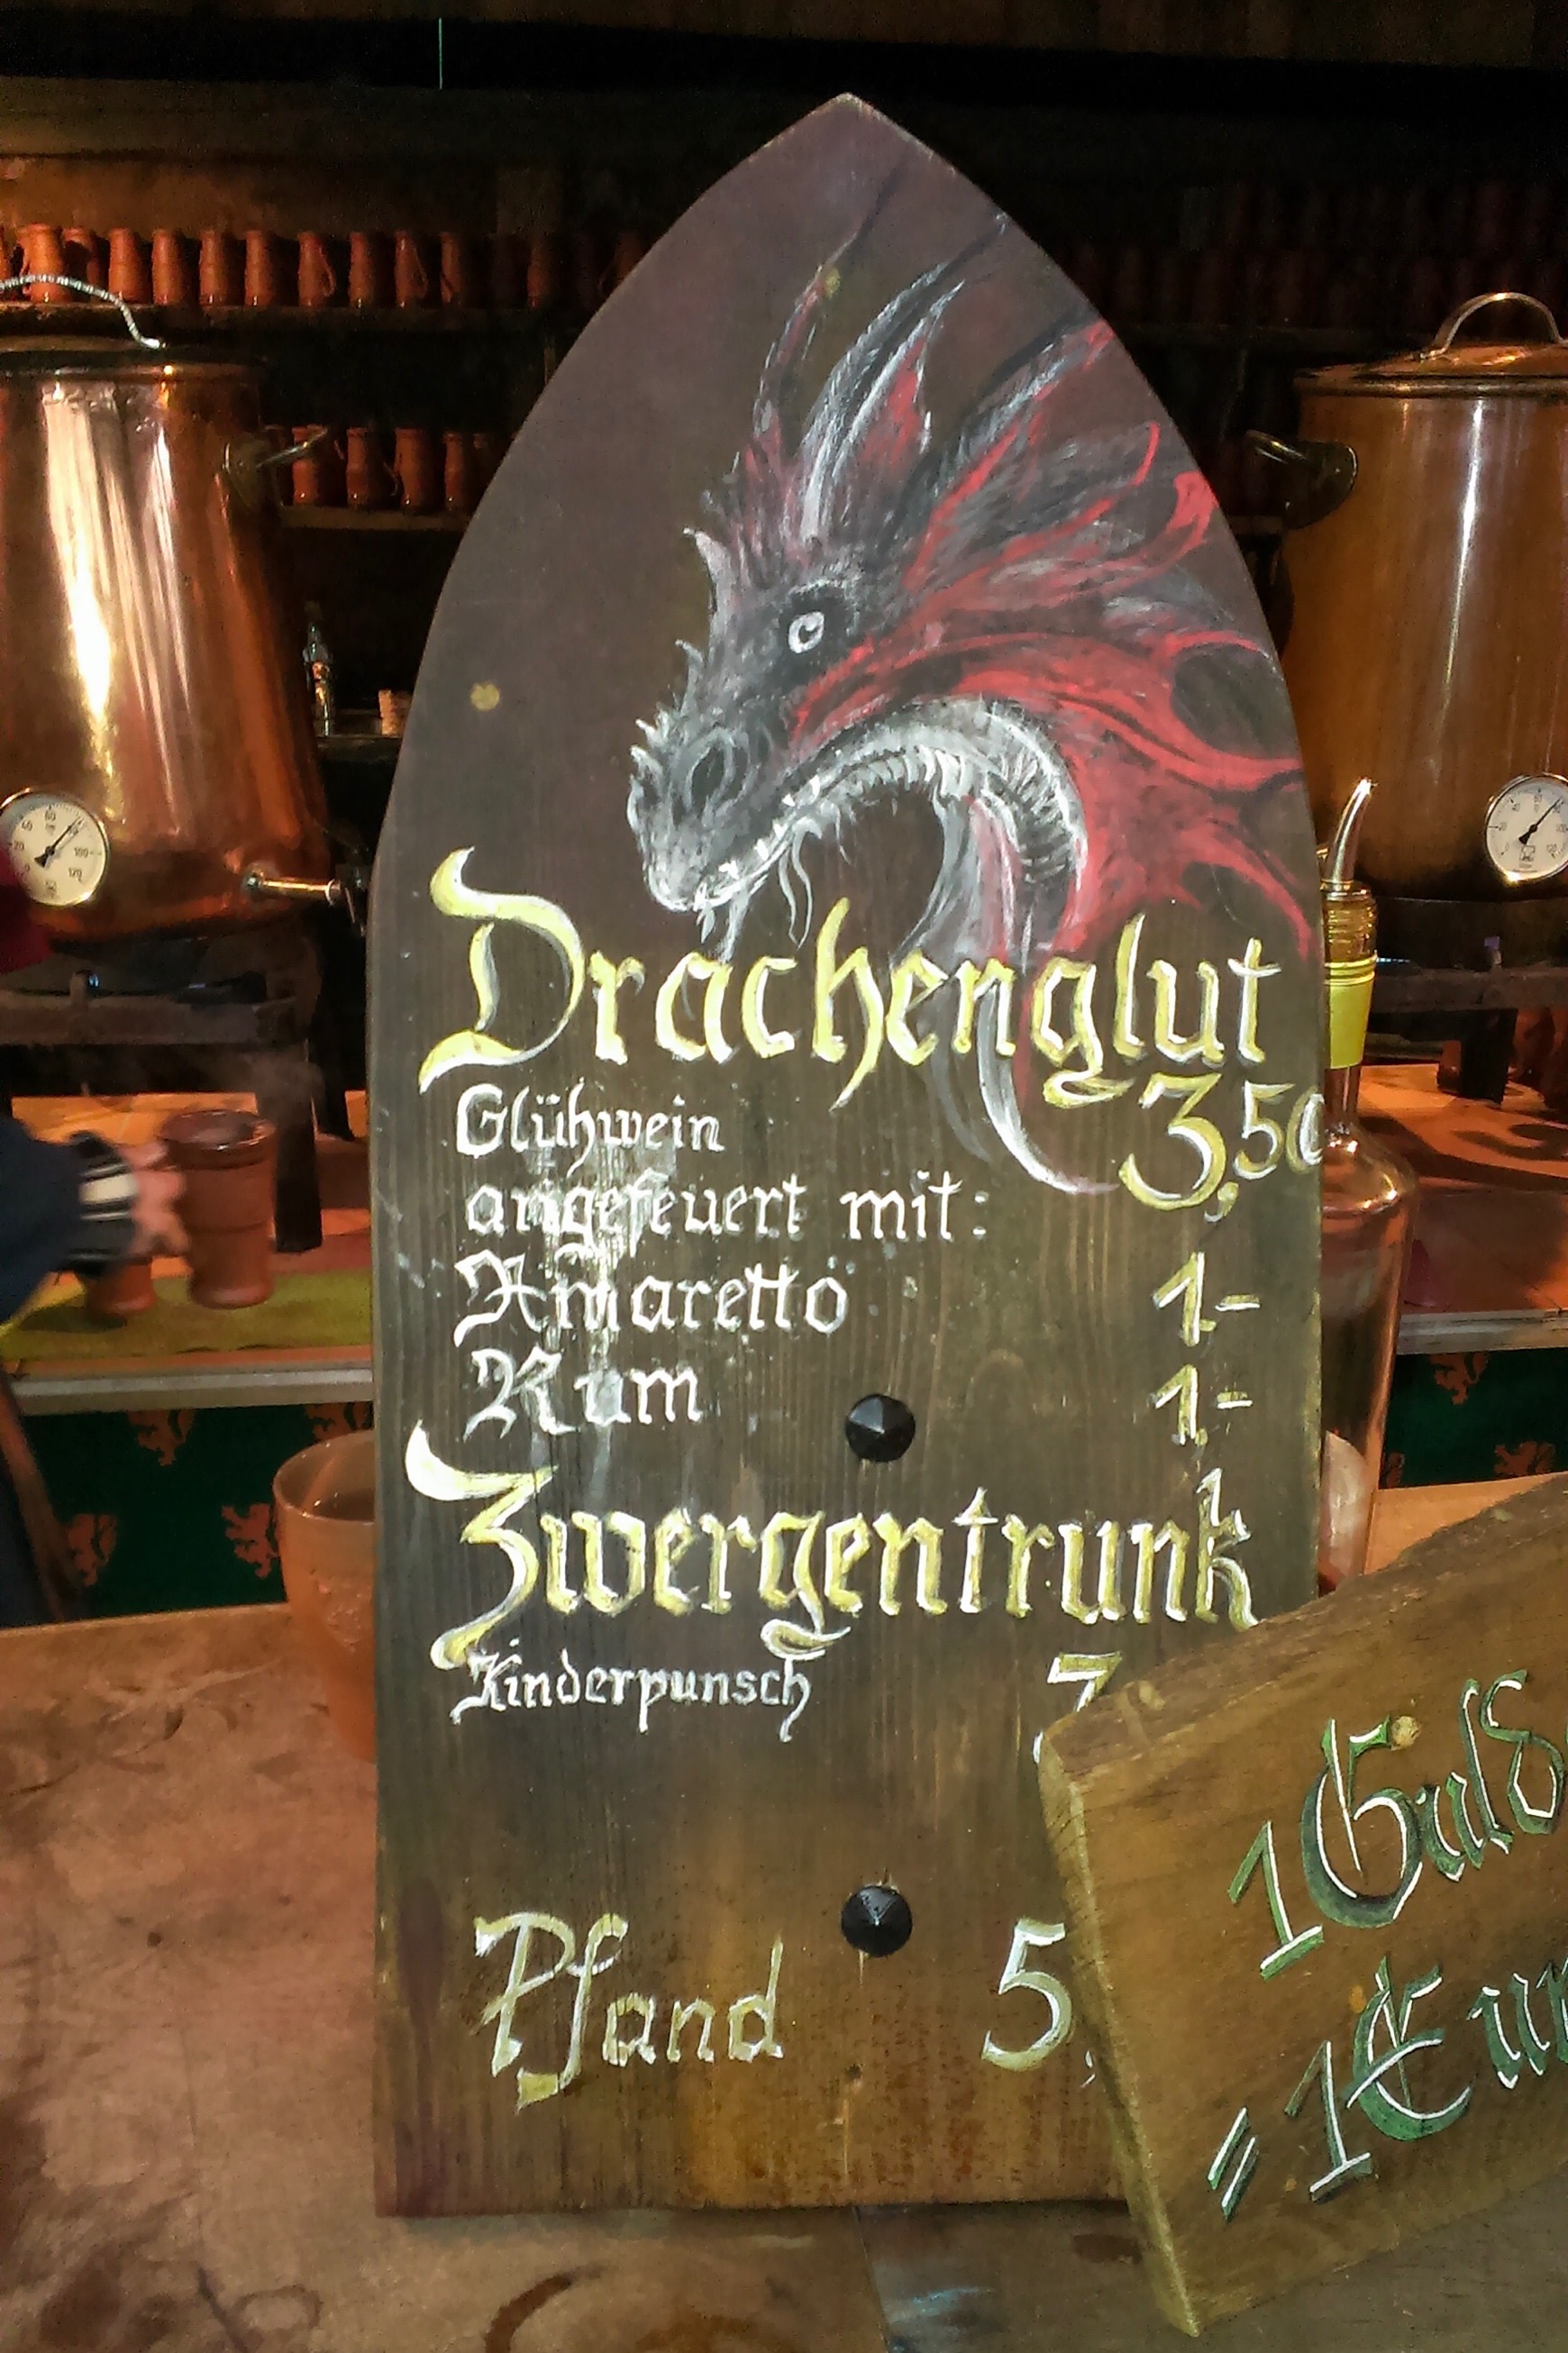 Drachenglut
3,50
Glühwein
angefeuert mit:
Amaretto 1-
Rum 1-
Zwergentrunk
Kinderpunsch
Pfand 5,
1
= 1